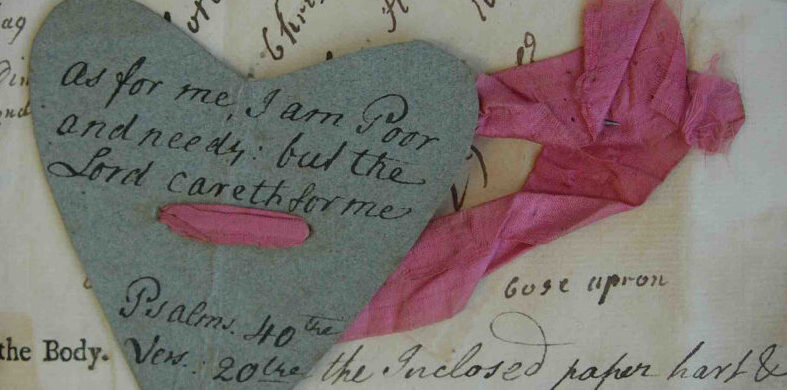 as for me, I am Poor
and needy: but the
Lord careth for me
Psalms. 40the
Vers. 20the
bose upron
the Body.
the Inclosed paper hart &